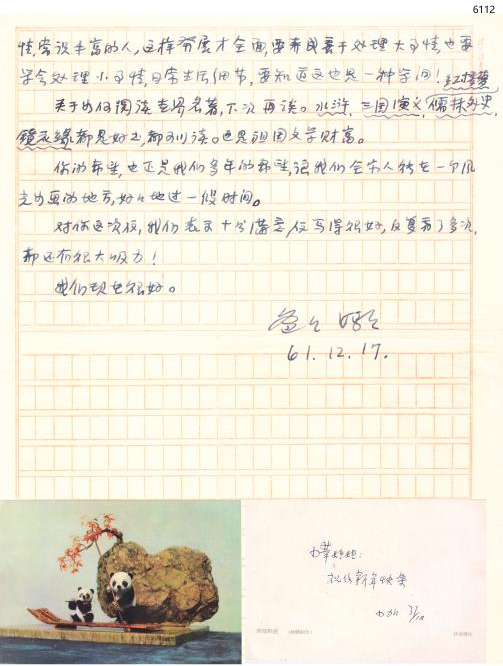 6112
情, 常识丰富的人, 这样发展才全面, 要养成善于处理大事情, 也要
学会处理小事情, 日常生活细节, 要知道这也是一种学问! 红楼梦
关于如何阅读古典名著, 下次再谈。水浒, 三国演义, 儒林外史,
镜花缘都是好书, 都可以读。也是祖国文学财富。
你的希望, 也正是我们多年的希望, 让我们全家人能在一个风
光如画的地方, 好好地过一段时间。
对你这次信, 我们表示十分满意, 信写得很好, 反复看了多次,
都还有很大吸力!
我们现在很好。
爸爸
61.12.17.
小华姐姐:
祝你新年快乐
小